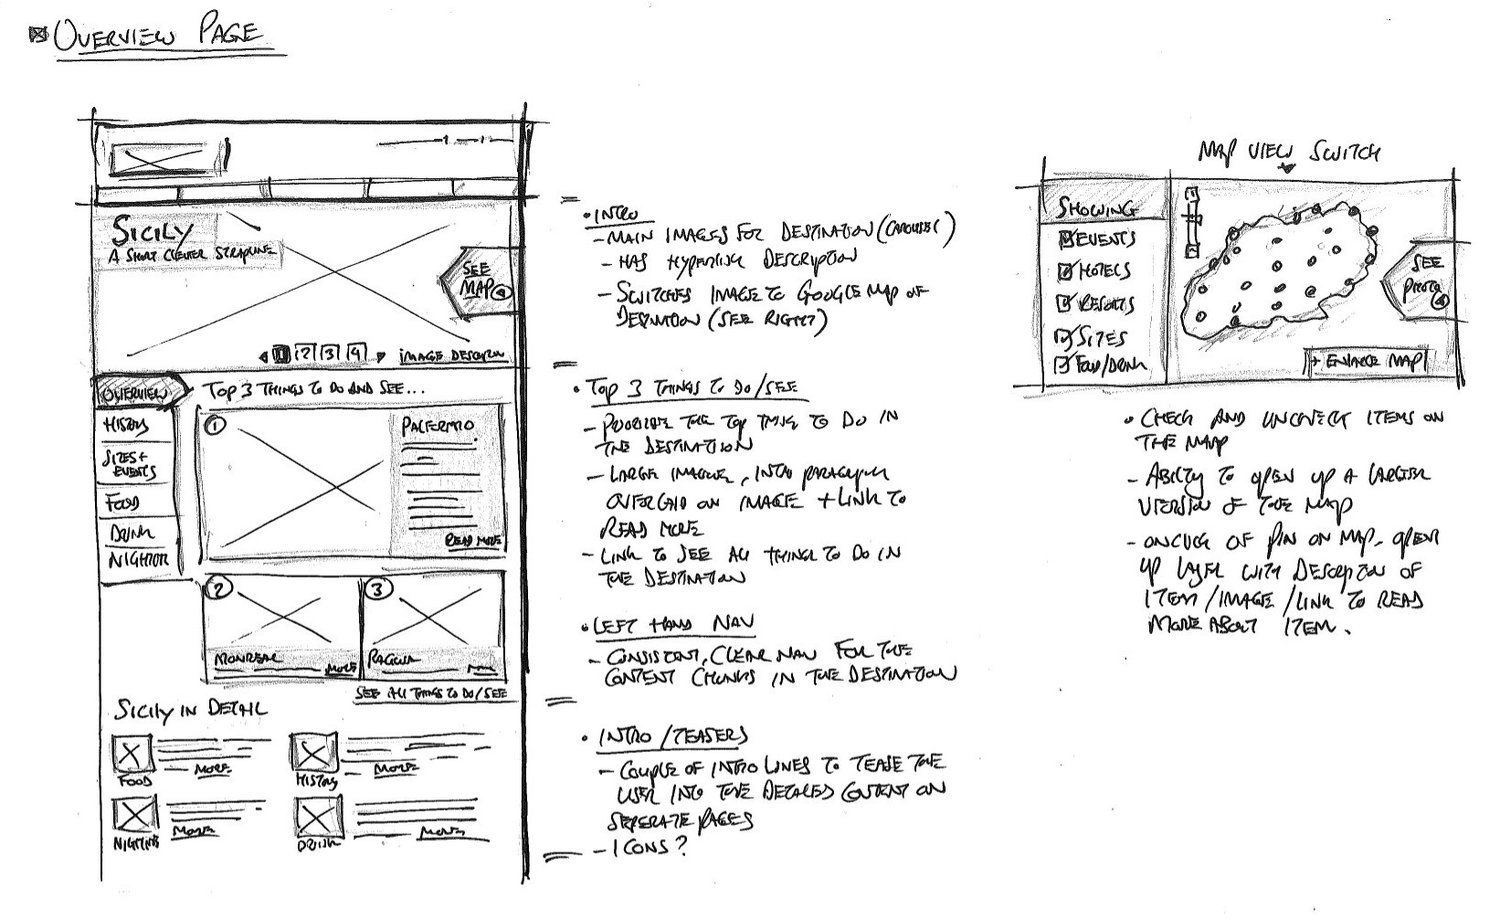 OVERVIEW PAGE
SICILY
A SHORT CLEVER STRAPLINE
SEE
MAP
1 2 3 4 IMAGE DESCRIPTION
OVERVIEW
HISTORY
SITES +
EVENTS
FOOD
DRINK
TOP 3 THINGS TO DO AND SEE...
1
PALERMO
READ MORE
2
MONREAL
MORE
3
RAGUSA
SEE ALL THINGS TO DO/SEE
SICILY IN DETAIL
FOOD
MORE
HISTORY
MORE
MORE
DRINK
MORE
• INTRO
- MAIN IMAGES FOR DESTINATION (CAROUSEL)
- HAS HYPERLINK DESCRIPTION
- SWITCHES IMAGE TO GOOGLE MAP OF
DESTINATION (SEE RIGHT)
• TOP 3 THINGS TO DO/SEE
- THE TOP THING TO DO IN
THE DESTINATION
- LARGE IMAGE, INTRO PARAGRAPH
OVERLAID ON IMAGE + LINK TO
READ MORE
- LINK TO SEE ALL THINGS TO DO IN
THE DESTINATION
• LEFT HAND NAV
- CONSISTENT, CLEAR NAV FOR THE
CONTENT CHUNKS IN THE DESTINATION
• INTRO/TEASERS
- COUPLE OF INTRO LINES TO TEASE THE
USER INTO THE DETAILED CONTENT ON
SEPERATE PAGES
- ICONS?
MAP VIEW SWITCH
SHOWING
EVENTS
HOTELS
RESORTS
SITES
FOOD/DRINK
SEE
PHOTO
+ ENLARGE MAP
• CHECK AND UNCHECK ITEMS ON
THE MAP
- ABILITY TO OPEN UP A LARGER
VERSION OF THE MAP
- ONCLICK OF PIN ON MAP - OPEN
UP LAYER WITH DESCRIPTION OF
ITEM/IMAGE/LINK TO READ
MORE ABOUT ITEM.